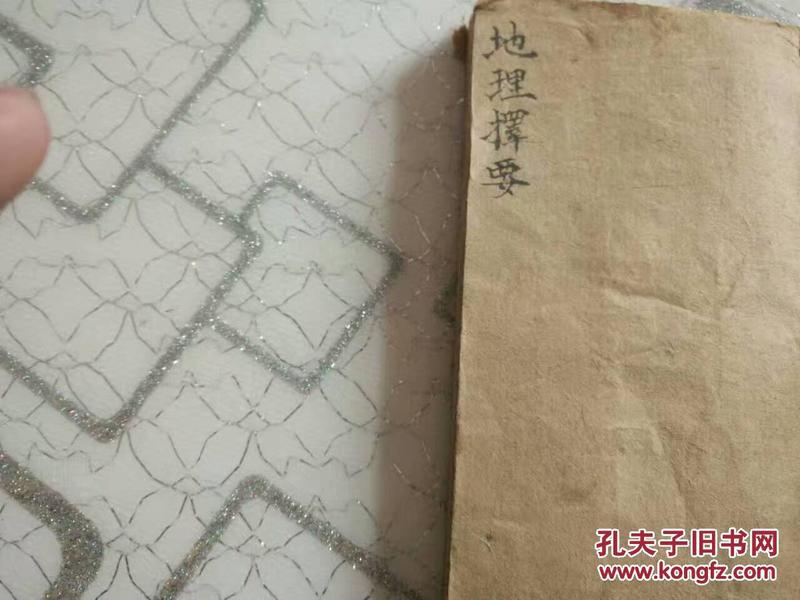 地理擇要
孔夫子旧书网
www.kongfz.com